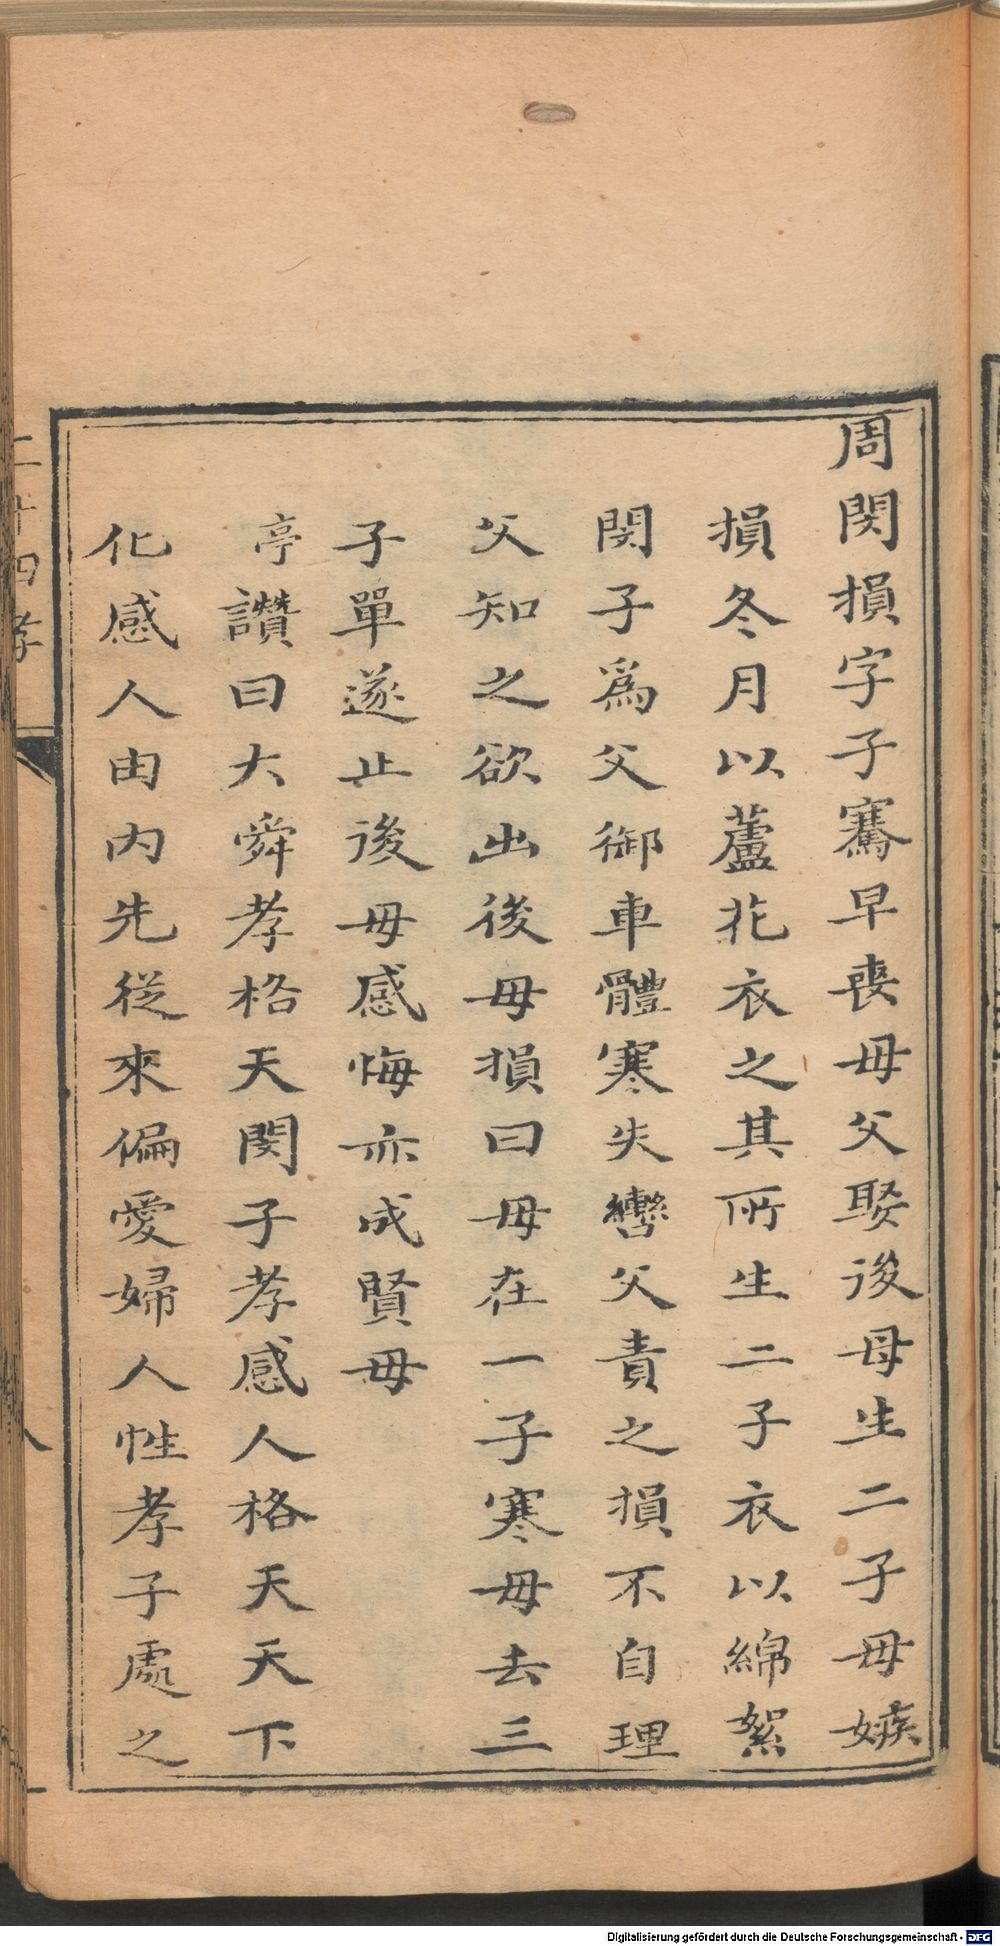 周閔損字子騫早喪母父娶後母生二子母嫉
損冬月以蘆花衣之其所生二子衣以綿絮
閔子爲父御車體寒失轡父責之損不自理
父知之欲出後母損曰母在一子寒母去三
子單遂止後母感悔亦成賢母
亭讚曰大舜孝格天閔子孝感人格天天下
化感人由内先從來偏愛婦人性孝子處之
二十四孝
Digitalisierung gefördert durch die Deutsche Forschungsgemeinschaft - DFG